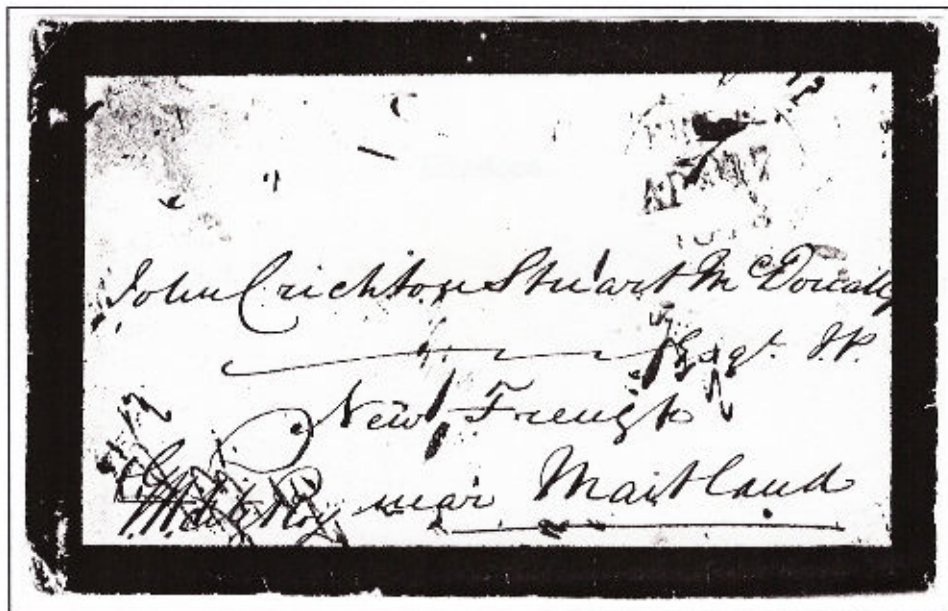 John Crichton Stuart McDouall
Esqr. JP.
New Freugh
near Maitland